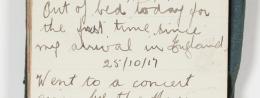 Out of bed today for
the first time since
my arrival in England.
25/10/17
Went to a concert